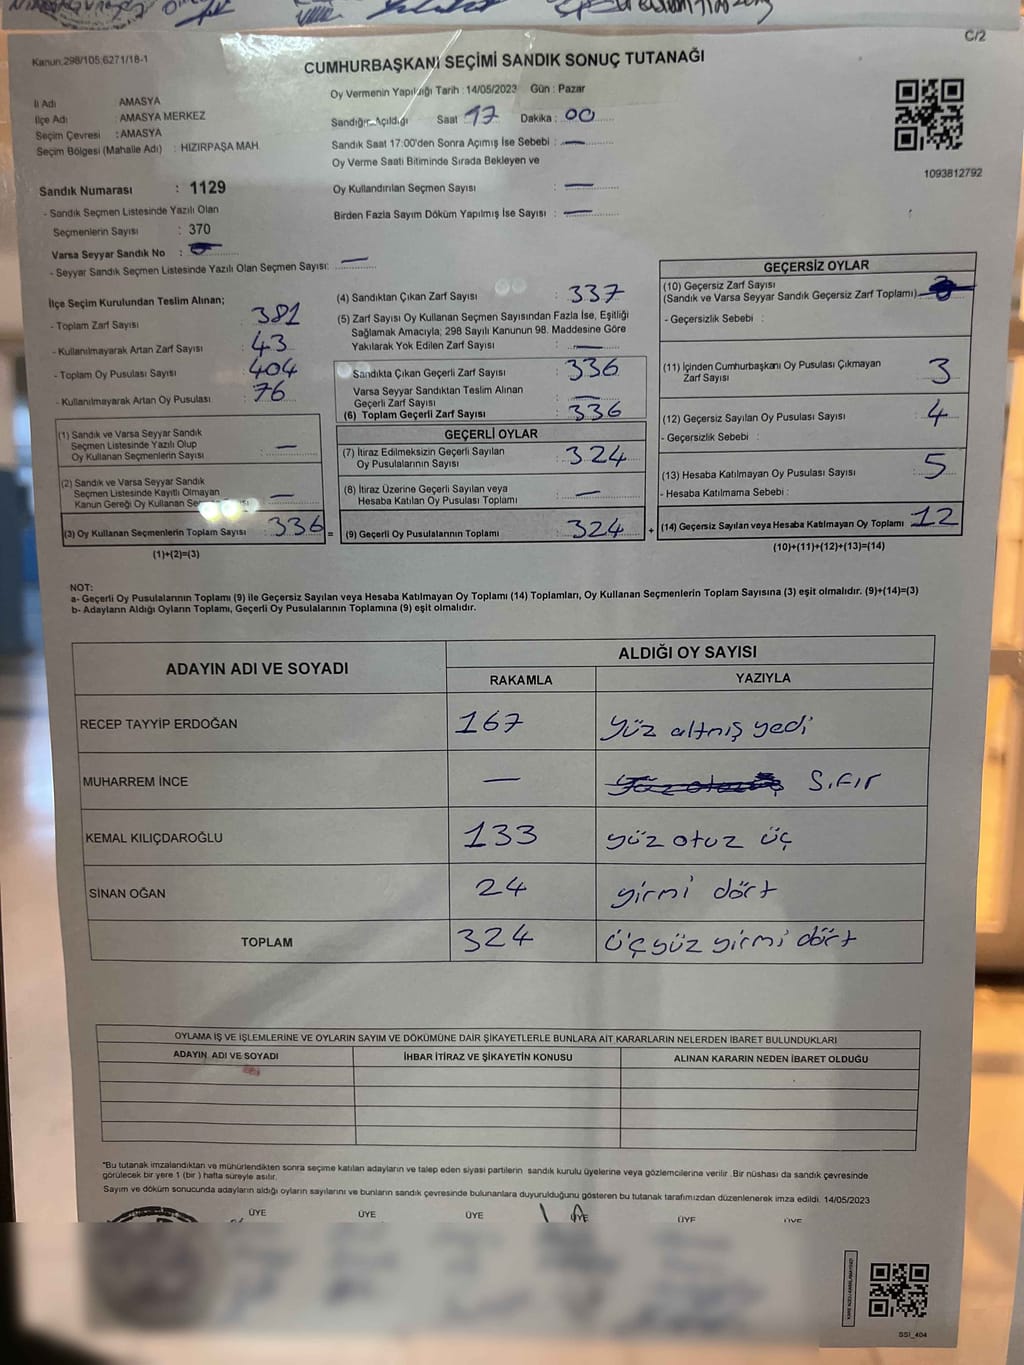 C/2
Kanun:298/105;6271/18-1
CUMHURBAŞKANI SEÇİMİ SANDIK SONUÇ TUTANAĞI
Oy Vermenin Yapıldığı Tarih : 14/05/2023 Gün : Pazar
İl Adı AMASYA
İlçe Adı : AMASYA MERKEZ
Seçim Çevresi : AMASYA
Seçim Bölgesi (Mahalle Adı) : HIZIRPAŞA MAH.
Sandığın Açıldığı Saat 17 Dakika : 00
Sandık Saat 17:00'den Sonra Açımış İse Sebebi : —
Oy Verme Saati Bitiminde Sırada Bekleyen ve
Oy Kullandırılan Seçmen Sayısı : —
Birden Fazla Sayım Döküm Yapılmış İse Sayısı : —
1093812792
Sandık Numarası : 1129
- Sandık Seçmen Listesinde Yazılı Olan
Seçmenlerin Sayısı : 370
Varsa Seyyar Sandık No :
- Seyyar Sandık Seçmen Listesinde Yazılı Olan Seçmen Sayısı: —
İlçe Seçim Kurulundan Teslim Alınan;
- Toplam Zarf Sayısı : 381
- Kullanılmayarak Artan Zarf Sayısı : 43
- Toplam Oy Pusulası Sayısı : 404
- Kullanılmayarak Artan Oy Pusulası : 76
(1) Sandık ve Varsa Seyyar Sandık
Seçmen Listesinde Yazılı Olup
Oy Kullanan Seçmenlerin Sayısı : —
(2) Sandık ve Varsa Seyyar Sandık
Seçmen Listesinde Kayıtlı Olmayan
Kanun Gereği Oy Kullanan —
(3) Oy Kullanan Seçmenlerin Toplam Sayısı : 336 =
(1)+(2)=(3)
(4) Sandıktan Çıkan Zarf Sayısı : 337
(5) Zarf Sayısı Oy Kullanan Seçmen Sayısından Fazla İse, Eşitliği
Sağlamak Amacıyla; 298 Sayılı Kanunun 98. Maddesine Göre
Yakılarak Yok Edilen Zarf Sayısı : —
Sandıkta Çıkan Geçerli Zarf Sayısı : 336
Varsa Seyyar Sandıktan Teslim Alınan
Geçerli Zarf Sayısı : —
(6) Toplam Geçerli Zarf Sayısı : 336
GEÇERLİ OYLAR
(7) İtiraz Edilmeksizin Geçerli Sayılan
Oy Pusulalarının Sayısı : 324
(8) İtiraz Üzerine Geçerli Sayılan veya
Hesaba Katılan Oy Pusulası Toplamı : —
(9) Geçerli Oy Pusulalarının Toplamı : 324 +
GEÇERSİZ OYLAR
(10) Geçersiz Zarf Sayısı
(Sandık ve Varsa Seyyar Sandık Geçersiz Zarf Toplamı)
- Geçersizlik Sebebi :
(11) İçinden Cumhurbaşkanı Oy Pusulası Çıkmayan
Zarf Sayısı : 3
(12) Geçersiz Sayılan Oy Pusulası Sayısı : 4
- Geçersizlik Sebebi :
(13) Hesaba Katılmayan Oy Pusulası Sayısı : 5
- Hesaba Katılmama Sebebi :
(14) Geçersiz Sayılan veya Hesaba Katılmayan Oy Toplamı : 12
(10)+(11)+(12)+(13)=(14)
NOT:
a- Geçerli Oy Pusulalarının Toplamı (9) ile Geçersiz Sayılan veya Hesaba Katılmayan Oy Toplamı (14) Toplamları, Oy Kullanan Seçmenlerin Toplam Sayısına (3) eşit olmalıdır. (9)+(14)=(3)
b- Adayların Aldığı Oyların Toplamı, Geçerli Oy Pusulalarının Toplamına (9) eşit olmalıdır.
ADAYIN ADI VE SOYADI
ALDIĞI OY SAYISI
RAKAMLA YAZIYLA
RECEP TAYYİP ERDOĞAN 167 yüz altmış yedi
MUHARREM İNCE — Sıfır
KEMAL KILIÇDAROĞLU 133 yüz otuz üç
SİNAN OĞAN 24 yirmi dört
TOPLAM 324 üçyüz yirmi dört
OYLAMA İŞ VE İŞLEMLERİNE VE OYLARIN SAYIM VE DÖKÜMÜNE DAİR ŞİKAYETLERLE BUNLARA AİT KARARLARIN NELERDEN İBARET BULUNDUKLARI
ADAYIN ADI VE SOYADI İHBAR İTİRAZ VE ŞİKAYETİN KONUSU ALINAN KARARIN NEDEN İBARET OLDUĞU
*Bu tutanak imzalandıktan ve mühürlendikten sonra seçime katılan adayların ve talep eden siyasi partilerin sandık kurulu üyelerine veya gözlemcilerine verilir .Bir nüshası da sandık çevresinde
görülecek bir yere 1 (bir ) hafta süreyle asılır.
Sayım ve döküm sonucunda adayların aldığı oyların sayılarını ve bunların sandık çevresinde bulunanlara duyurulduğunu gösteren bu tutanak tarafımızdan düzenlenerek imza edildi. 14/05/2023
ÜYE ÜYE ÜYE ÜYE ÜYE ÜYE
SSI_404